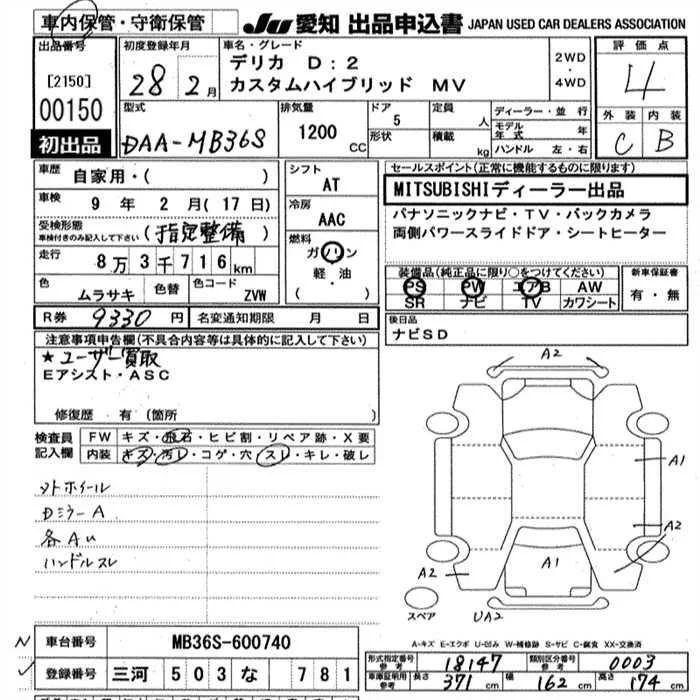 車内保管・守衛保管
JU 愛知 出品申込書 JAPAN USED CAR DEALERS ASSOCIATION
出品番号
[2150]
00150
初出品
初度登録年月
28 2月
車名・グレード
デリカ D:2
カスタムハイブリッド MV
2WD
・
4WD
評価点
4
外装 内装
C B
型式
DAA-MB36S
排気量
1200 CC
ドア 5
形状
定員 人
積載 kg
ディーラー・並行
モデル年式 年
ハンドル 左・右
車歴
自家用・( )
車検
9 年 2 月(17 日)
受検形態
車検付きのみ記入して下さい
(指定整備)
走行
8万3千716km
色
ムラサキ
色替
色コード
ZVW
シフト
AT
冷房
AAC
燃料
ガソリン
軽油・
( )
セールスポイント(正常に機能するものに限ります)
MITSUBISHIディーラー出品
パナソニックナビ・TV・バックカメラ
両側パワースライドドア・シートヒーター
装備品(純正品に限り○をつけてください)
PS PW エアB AW
SR ナビ TV カワシート
新車保証書
有・無
R券 9330 円
名変通知期限 月 日
後日品
ナビSD
注意事項申告欄(不具合内容等は具体的に記入して下さい)
★ユーザー買取
Eアシスト・ASC
修復歴・有(箇所
検査員記入欄
FW キズ・飛石・ヒビ割・リペア跡・X要
内装 キズ・汚レ・コゲ・穴・スレ・キレ・破レ
タトホイール
DミラーA
各AU
ハンドルスレ
A2
A1
A2
A1
A2
UA2
スペア
A-キズ E-エクボ U-凹み W-補修跡 S-サビ C-腐食 XX-交換済
N 車台番号 MB36S-600740
登録番号 三河 503 な 781
形式指定番号 参考 18147
類別区分番号 参考 0003
車庫証明用 参考 長さ 371 cm 幅 162 cm 高さ 174 cm